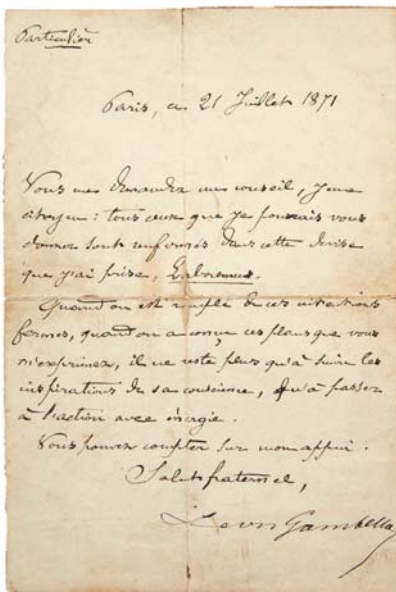 Particulière
Paris, ce 21 Juillet 1871
Vous me demandez un conseil, jeune
citoyen : tous ceux que je pourrais vous
donner sont renfermés dans cette devise
que j'ai prise, Laboremus.
Quand on est rempli de ces intentions
fermes, quand on a conçu ces plans que vous
m'exprimez, il ne reste plus qu'à suivre les
inspirations de sa conscience, qu'à passer
à l'action avec énergie.
Vous pouvez compter sur mon appui.
Salut fraternel,
Leon Gambetta